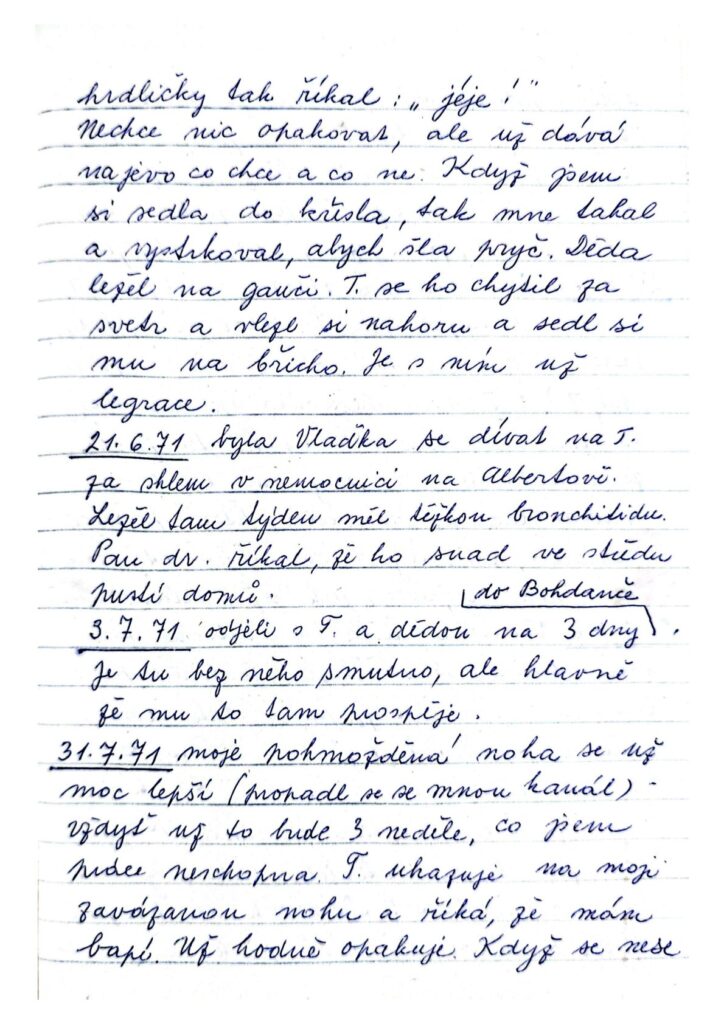 hrdličky tak říkal: „jéje!"
Nechce nic opakovat, ale už dává
najevo co chce a co ne. Když jsem
si sedla do křesla, tak mne tahal
a vystrkoval, abych šla pryč. Děda
ležel na gauči. T. se ho chytil za
svetr a vlezl si nahoru a sedl si
mu na břicho. Je s ním už
legrace.
21.6.71 byla Vlaďka se dívat na T.
za sklem v nemocnici na Albertově.
Ležel tam týden měl těžkou bronchitidu.
Pan dr. říkal, že ho snad ve středu
pustí domů.
do Bohdanče
3.7.71 odjeli s T. a dědou na 3 dny.
Je tu bez něho smutno, ale hlavně
že mu to tam prospěje.
31.7.71 moje pohmožděná noha se už
moc lepší (propadl se se mnou kanál) -
vždyť už to bude 3 neděle, co jsem
práce neschopna. T. ukazuje na moji
zavázanou nohu a říká, že mám
bapí. Už hodně opakuje. Když se nese